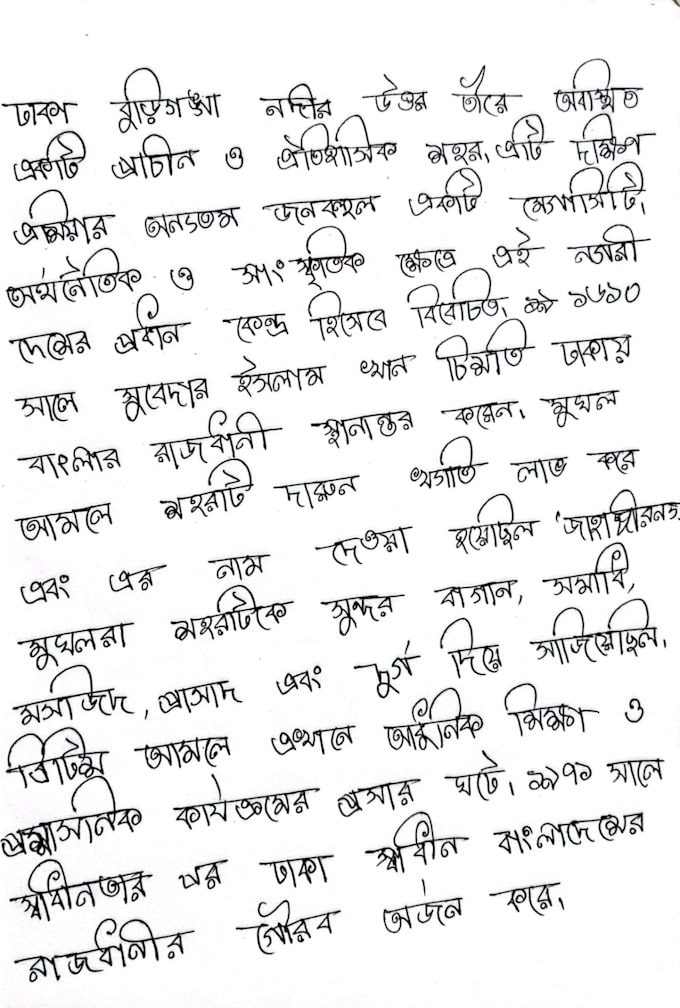 ঢাকা বুড়িগঙ্গা নদীর উত্তর তীরে অবস্থিত
একটি প্রাচীন ও ঐতিহাসিক শহর, এটি দক্ষিণ
এশিয়ার অন্যতম জনবহুল একটি মেগাসিটি,
অর্থনৈতিক ও সাংস্কৃতিক ক্ষেত্রে এই নগরী
দেশের প্রধান কেন্দ্র হিসেবে বিবেচিত, ১৬১০
সালে সুবেদার ইসলাম খান চিশতি ঢাকায়
বাংলার রাজধানী স্থানান্তর করেন, মুঘল
আমলে শহরটি দারুন খ্যাতি লাভ করে
এবং এর নাম দেওয়া হয়েছিল 'জাহাঙ্গীরনগ
মুঘলরা শহরটিকে সুন্দর বাগান, সমাধি,
মসজিদ, প্রাসাদ এবং দুর্গ দিয়ে সাজিয়েছিল,
ব্রিটিশ আমলে এখানে আধুনিক শিক্ষা ও
প্রশাসনিক কার্যক্রমের প্রসার ঘটে, ১৯৭১ সালে
স্বাধীনতার পর ঢাকা স্বাধীন বাংলাদেশের
রাজধানীর গৌরব অর্জন করে,